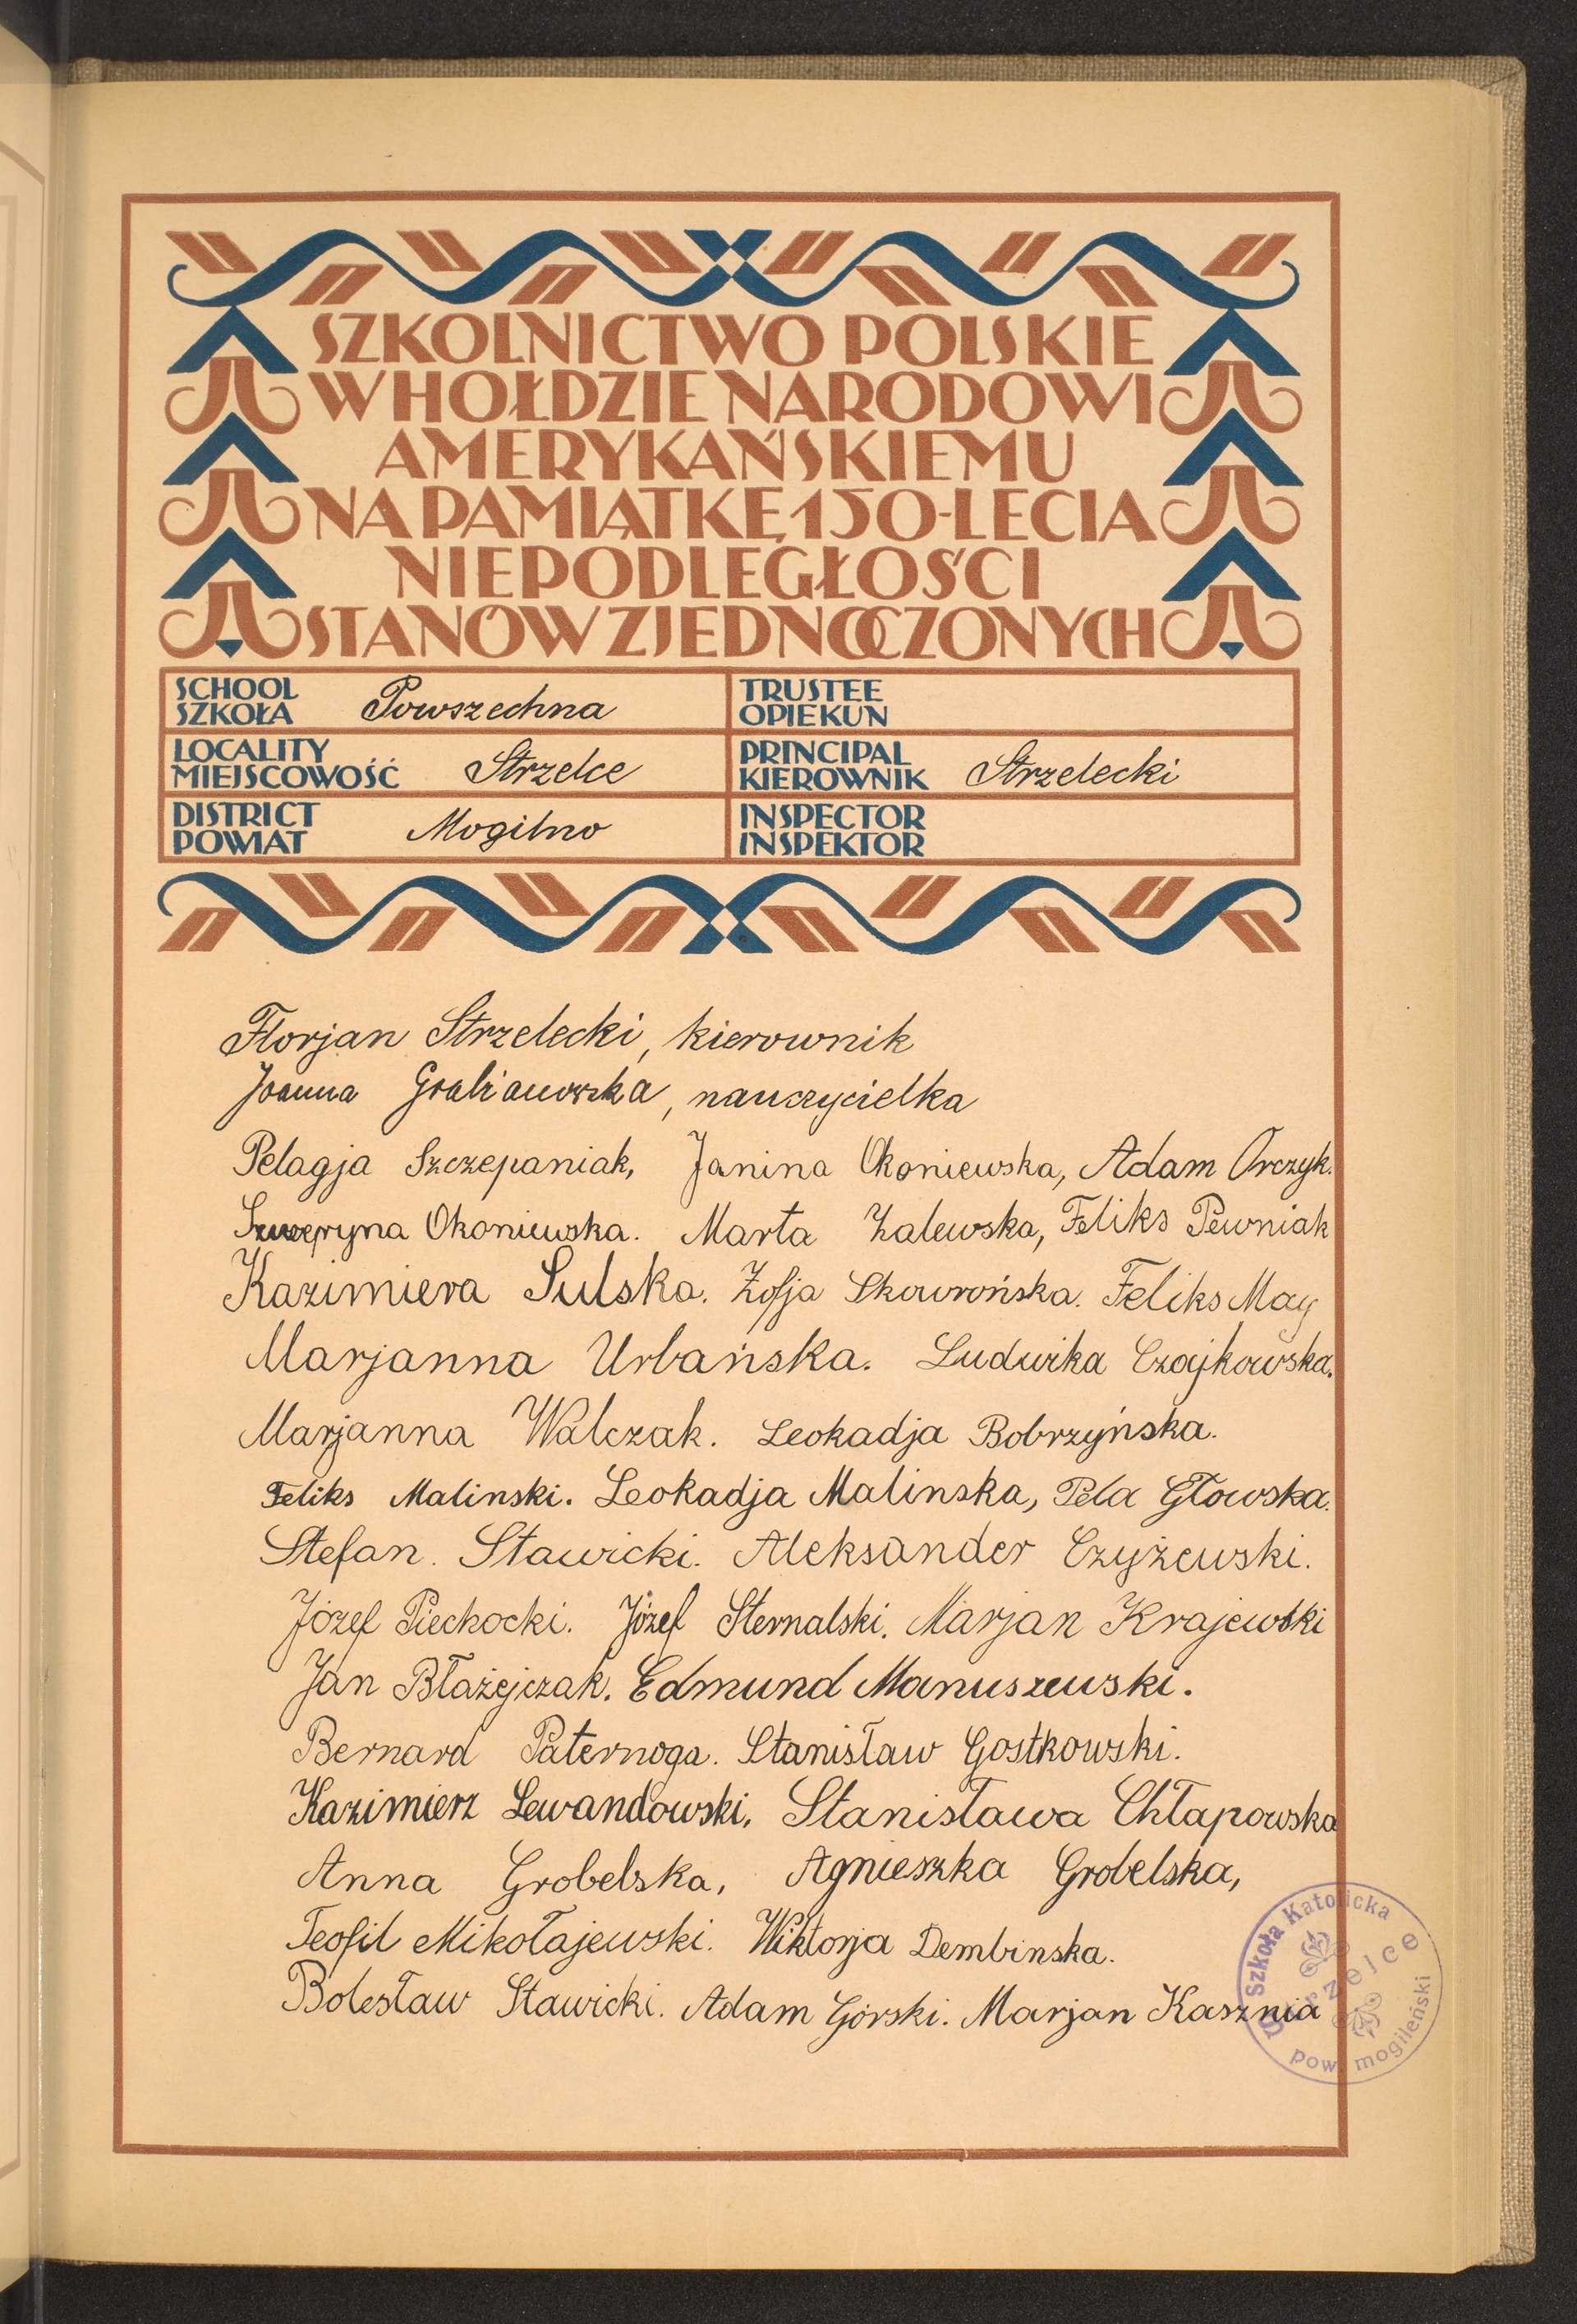 SZKOLNICTWO POLSKIE
W HOŁDZIE NARODOWI
AMERYKAŃSKIEMU
NA PAMIĄTKĘ 150-LECIA
NIEPODLEGŁOŚCI
STANÓW ZJEDNOCZONYCH
SCHOOL
SZKOŁA Powszechna
TRUSTEE
OPIEKUN
LOCALITY
MIEJSCOWOŚĆ Strzelce
PRINCIPAL
KIEROWNIK Strzelecki
DISTRICT
POWIAT Mogilno
INSPECTOR
INSPEKTOR
Florjan Strzelecki, kierownik
Joanna Grabianowska, nauczycielka
Pelagja Szczepaniak, Janina Okoniewska, Adam Orczyk.
Okoniewska. Marta Zalewska, Feliks Pewniak
Kazimiera Sulska. Zofja Skowrońska. Feliks May
Marjanna Urbańska. Ludwika Czajkowska.
Marjanna Walczak. Leokadja Bobrzyńska.
Feliks Malinski. Leokadja Malinska, Pela Głowska.
Stefan. Stawicki. Aleksander Czyżewski.
Józef Piechocki. Józef Sternalski. Marjan Krajewski
Jan Błażejczak. Edmund Manuszewski.
Bernard Paternoga. Stanisław Gostkowski.
Kazimierz Lewandowski. Stanisława Chłapowska
Anna Grobelska, Agnieszka Grobelska,
Teofil Mikołajewski. Wiktorja Dembinska.
Bolesław Stawicki. Adam Górski. Marjan Kasznia
Szkoła Katolicka
Strzelce
pow. mogileński